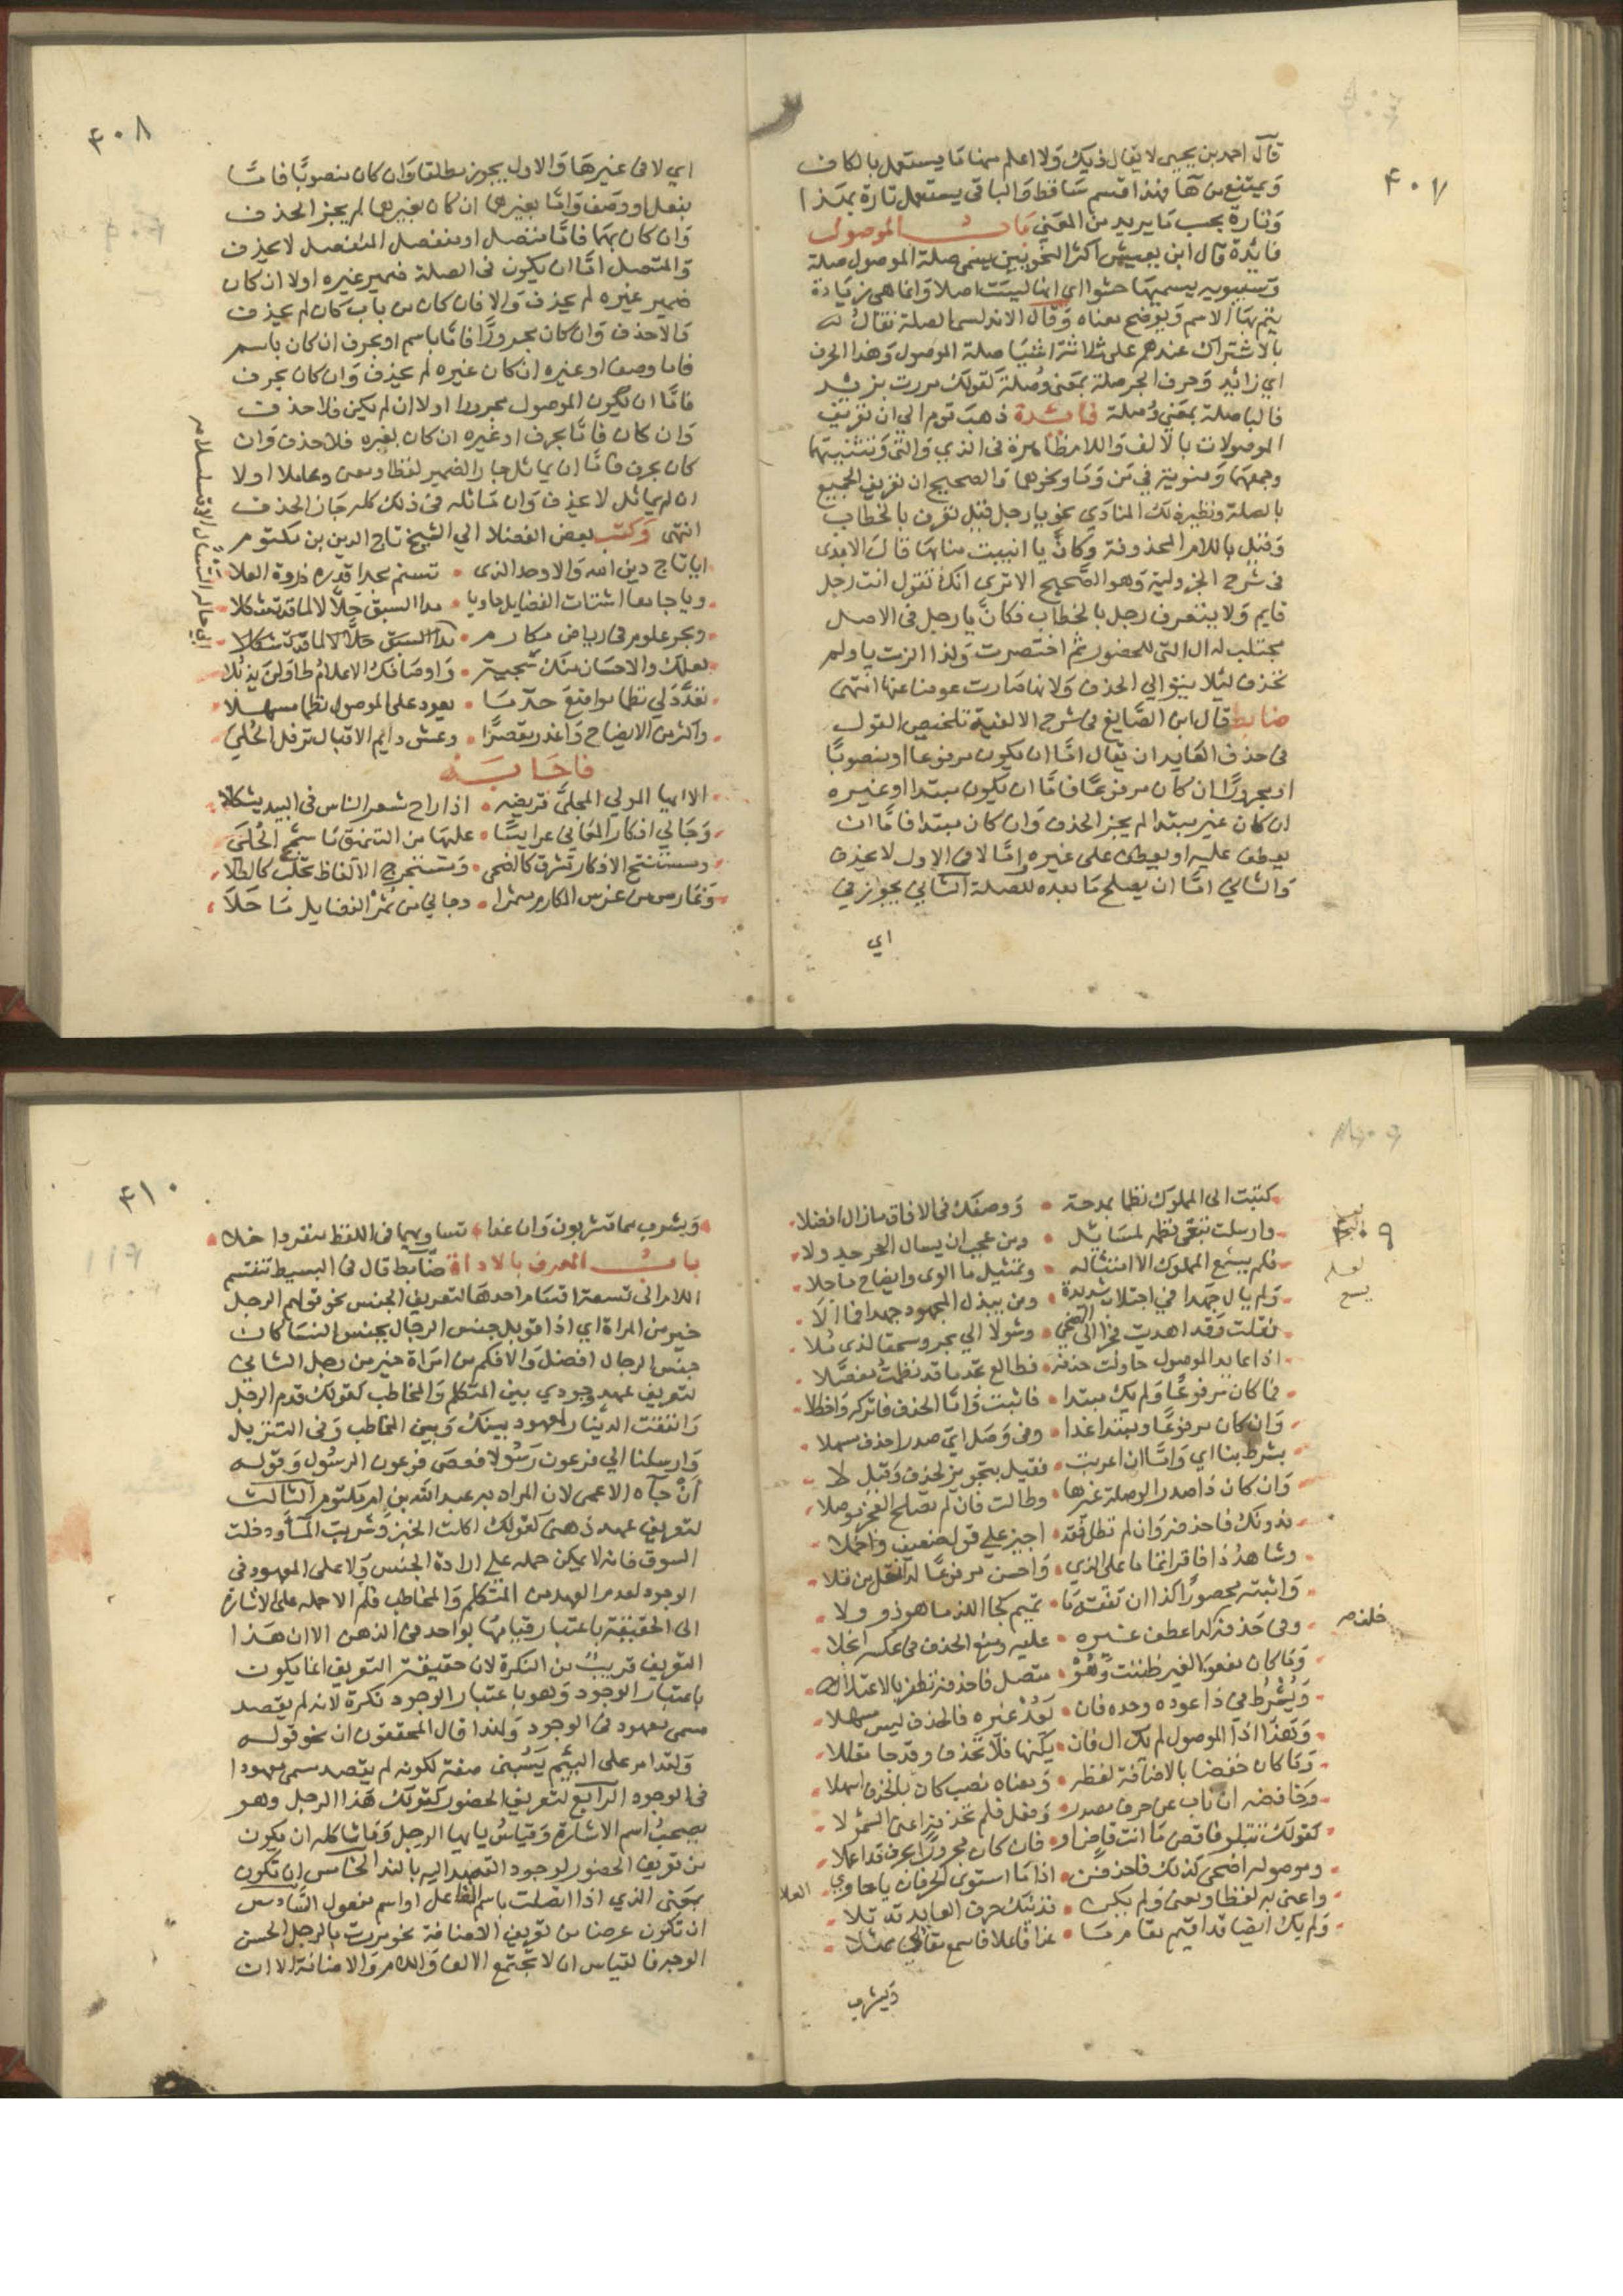 ٤٠٧
قال احمد بن يحيى لا يقال ذيك ولا اعلم منها ما يستعمل بالكاف
ويمتنع من ها فهذا قسم ساقط والباقي يستعمل تارة بهذا
وتارة بحسب ما يريد من المعنى باب الموصول
فائدة قال ابن يعيش اكثر النحويين يسمى صلة الموصول صلة
وسيبويه يسميها حشوا اي انها ليست اصلا وانما هي زيادة
يتم بها الاسم ويوضح معناه وقال الاندلسي الصلة تقال له
بالاشتراك عندهم على ثلاثة اشيا صلة الموصول وهذا الحرف
اي زائد وحرف الجر صلة بمعنى وصلة كقولك مررت بزيد
فالبا صلة بمعنى وصلة فائدة ذهب قوم الى ان تعريف
الموصولات بالالف واللام ظاهرة في الذي والتي وتثنيتهما
وجمعهما ومنوية في من وما ونحوهما والصحيح ان تعريف الجميع
بالصلة ونظيره ذلك المنادى نحو يا رجل قيل تعرف بالخطاب
وقيل باللام المحذوفة وكان يا انيبت منابها قال الابدي
في شرح الجزولية وهو الصحيح الا ترى انك تقول انت رجل
قايم ولا يتعرف رجل بالخطاب فكان يا رجل في الاصل
مجتلب له ال التي للحضور ثم اختصرت ولذا الزمت يا ولم
تحذف ليلا يتوالى الحذف ولانها صارت عوضا عنها انتهى
ضابط قال ابن الصايغ في شرح الالفية تلخيص القول
في حذف العايد ان يقال اما ان يكون مرفوعا او منصوبا
او مجرورا ان كان مرفوعا فاما ان يكون مبتدا او غيره
ان كان غير مبتدا لم يجز الحذف وان كان مبتدا فاما ان
يعطف عليه او يعطف على غيره واما لا في الاول لا يحذف
والثاني اما ان يصلح ما بعده للصلة الثاني يجوز في
اي
٤٠٨
اي لا في غيرها والاول يجوز مطلقا وان كان منصوبا فاما
بفعل او وصف واما بغيرهما ان كان بغيرهما لم يجز الحذف
وان كان بهما فاما متصل او منفصل المنفصل لا يحذف
والمتصل اما ان يكون في الصلة ضمير غيره اولا ان كان
ضمير غيره لم يحذف والا فان كان من باب كان لم يحذف
والا حذف وان كان مجرورا فاما باسم او بحرف ان كان باسم
فاما وصف او غيره ان كان غيره لم يحذف وان كان بحرف
فاما ان يكون الموصول مجرورا اولا ان لم يكن فلا حذف
وان كان فاما بحرف او غيره ان كان بغيره فلا حذف وان
كان بحرف فاما ان يماثل جار الضمير لفظا ومعنى وعاملا اولا
ان لم يماثل لا يحذف وان ماثله في ذلك كله جاز الحذف
انتهى وكتب بعض الفضلا الى الشيخ تاج الدين بن مكتوم
ايا تاج دين الله والاوحد الذي • تسنم مجدا قدره ذروة العلا
ويا جامعا اشتات الفضايل حاويا • مدا السبق حلا لا لما قد تشكلا
وبحر علوم في رياض مكارم • مدا السبق حلا لا لما قد تشكلا
لعلك والاحسان منك سجية • واوصافك الاعلام طاولن يذبلا
تعدد لي نظما مواضع حذف ما • يعود على الموصول نظما مسهلا
واكثر من الايضاح واعذر مقصرا • وعش دايم الاقبال ترفل الحلي
فاجابه
الا ايها المولى المجلي قريضه • اذا راح شعر الناس في البيد يشكلا
وجالي ابكار المعاني عرايسا • عليها من التنميق ما سمج الحلي
ومستنتج الافكار تشرق كالضحى • ومستخرج الالفاظ تحلب كالطلا
وغارس من غرس المكارم مثمرا • وجاني من ثمر الفضايل ما حلا
كتبت الى المملوك نظما بمدحة • ووصفك في الافاق ما زال افضلا
٤٠٩
وارسلت تبغي نظمه لمسائل • ومن عجب ان يسال البحر جدولا
فلم يسع المملوك الا امتثاله • وتمثيل ما الوى وايضاح ما جلا
ولم يال جهدا في اجتلاب شديدة • ومن يبذل المجهود جهدا فما الا
فقلت وقد اهديت فجرا الى الضحى • وشولا الى بحر وسحقا لذي ملا
اذا عايد الموصول حاولت حذفه • فطالع تجد ما قد نظمت مفصلا
فما كان مرفوعا ولم يك مبتدا • فاثبت واما الحذف فاتركه واحظلا
وان كان مرفوعا ومبتدا غدا • وفي وصل اي صدرا حذف مسهلا
بشرط بنا اي واما ان اعربت • فقيل بتجويز لحذف وقيل لا
وان كان ذا صدرا لوصلة غيرها • وطالت فان لم تصلح العجز موصلا
فدونك فاحذفه وان لم تطل فقد • اجيز على قول ضعيف واخملا
واثبته محصورا كذا ان تفته ما • تميم كجا اللذ ما هو ذو ولا
وفي حذفه ان اعطف غيره • عليه ومنع الحذف في عكسه انجلا
وما كان مفعولا لغير ظننت وهو • متصل فاحذفه تظفر بالاعتلا
ويشرط في ذا عوده وحده فان • يعد غيره فالحذف ليس مسهلا
وما كان خفضا بالاضافة لفظه • ومعناه نصب كان بالحذف اسهلا
وخافضه ان ناب عن حرف مصدر • وفعل فلم تحذفه اعني السمولا
كقولك تتلو فاقض ما انت قاض او • فان كان مجرورا بحرف قد اعملا
وموصوله اضحى كذلك فاحذفن • اذا ما استوى الحرفان يا حاوي العلا
ولم يك ايضا قد اقيم مقام ما • غدا فاعلا فاسمع مقالي ممثلا
ويشرب
٤١٠
ويشرب مما تشربون وان غدا • تساويهما في اللفظ منفردا خلا
باب المعرف بالاداة ضابط قال في البسيط تنقسم
اللام الى تسعة اقسام احدها لتعريف الجنس نحو قولهم الرجل
خير من المراة اي اذا قوبل جنس الرجال بجنس النسا كان
جنس الرجال افضل والا فكم من امراة خير من رجل الثاني
لتعريف عهد وجودي بين المتكلم والمخاطب كقولك قدم الرجل
وانفقت الدينار لمعهود بينك وبين المخاطب وفي التنزيل
وارسلنا الى فرعون رسولا فعصى فرعون الرسول وقوله
ان جاه الاعمى لان المراد به عبد الله بن ام مكتوم الثالث
لتعريف عهد ذهني كقولك اكلت الخبز وشربت الما ودخلت
السوق فانه لا يمكن حمله على ارادة الجنس ولا على المعهود في
الوجود لعدم العهد من المتكلم والمخاطب فلم الا حمله على الاشارة
الى الحقيقة باعتبار قيامها بواحد في الذهن الا ان هذا
التعريف قريب من النكرة لان حقيقة التعريف انما يكون
باعتبار الوجود وهو باعتبار الوجود نكرة لانه لم يقصد
مسمى معهود في الوجود ولهذا قال المحققون ان نحو قوله
ولقد امر على اللئيم يسبني صفة لكونه لم يقصد مسمى معهودا
في الوجود الرابع لتعريف الحضور كقولك هذا الرجل وهو
يصحب اسم الاشارة وقياس يا ايها الرجل وما شاكله ان يكون
من تعريف الحضور لوجود القصد اليه بالندا الخامس ان تكون
بمعنى الذي اذا اتصلت باسم الفاعل او اسم مفعول السادس
ان تكون عوضا من تعريف الاضافة نحو مررت بالرجل الحسن
الوجه فالقياس ان لا تجتمع الالف واللام والاضافة الا ان